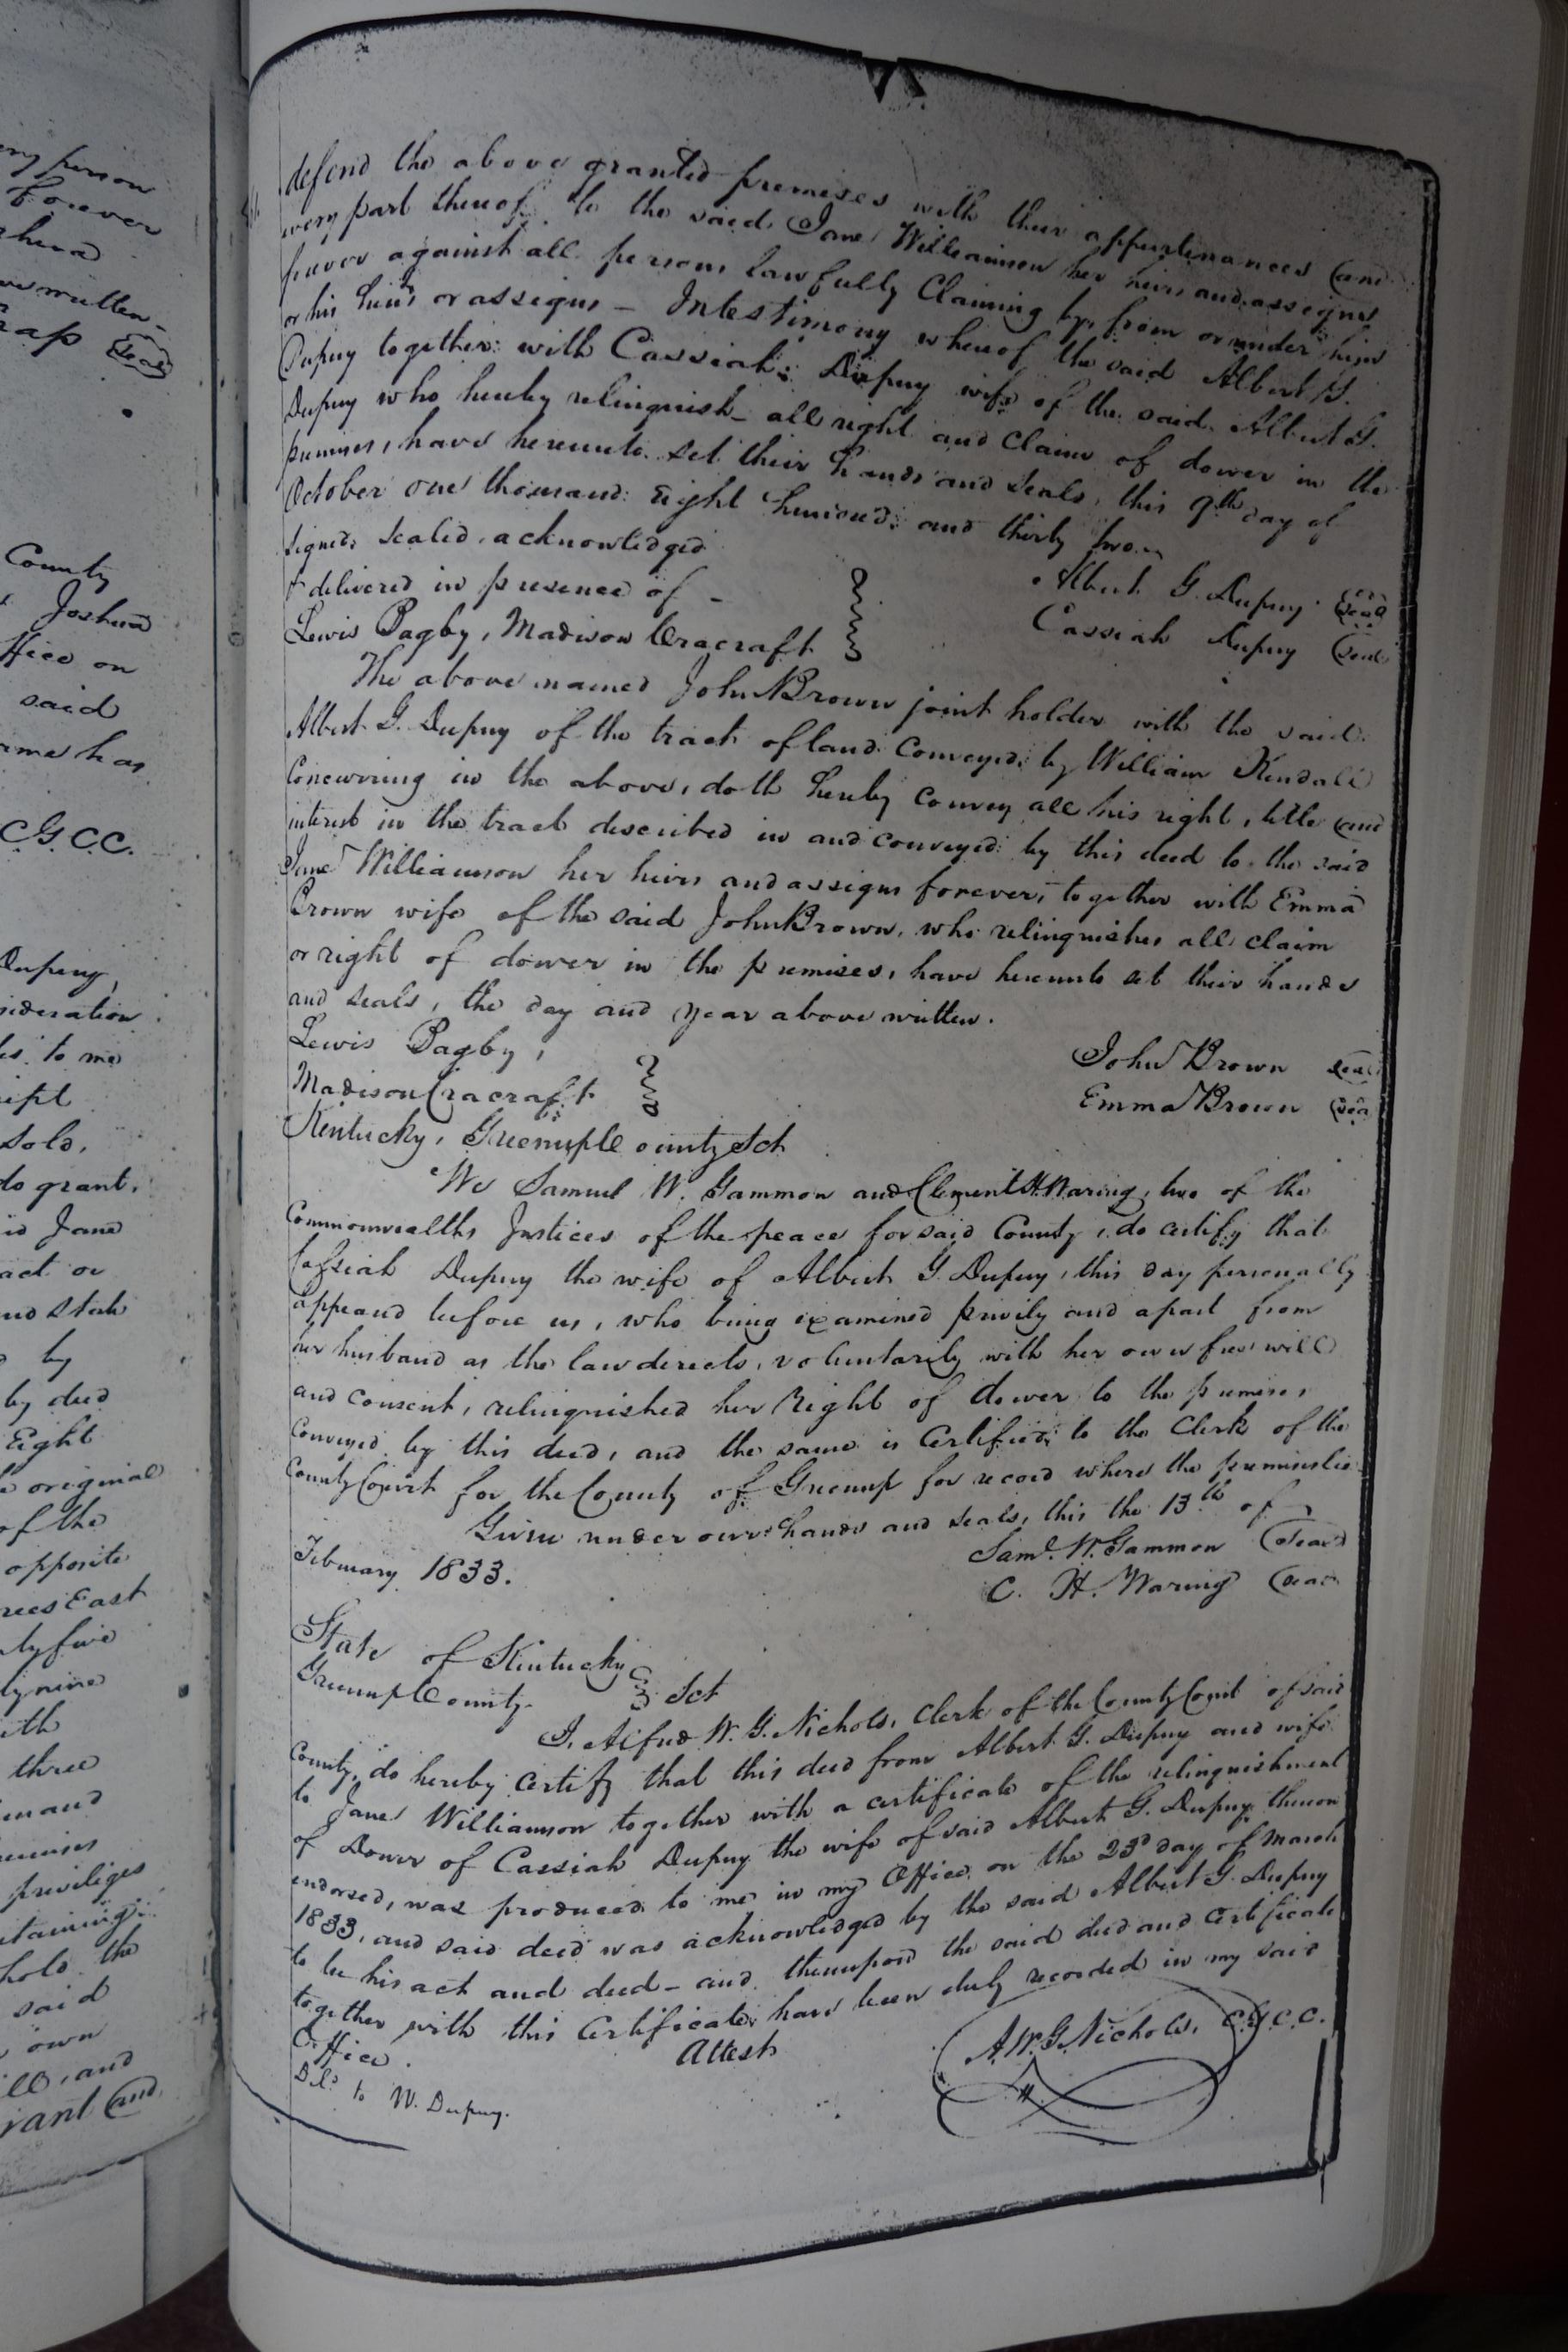 ery person
forever
shua
ve written
rap Seal
County
Joshua
ffice on
said
ame has
C.G.C.C.
Dupuy,
nsideration
to me
ipt
sold,
do grant,
id Jane
act or
and State
by
by deed
Eight
e original
of the
opposite
rees East
ty five
ty nine
ith
three
privileges
taining
hold the
said
own
and
rant and
defend the above granted premises with their appurtenances and
every part thereof to the said Jane Williamson her heirs and assigns
forever against all persons lawfully Claiming by, from or under him
or his heirs or assigns – In testimony whereof the said Albert G.
Dupuy together with Cassiah Dupuy wife of the said Albert G.
Dupuy who hereby relinquish all right and Claim of dower in the
premises, have hereunto set their hands and seals, this 9th day of
October one thousand Eight hundred and thirty two
Signed, Sealed, acknowledged
& delivered in presence of –
Albert G. Dupuy Seal
Lewis Bagby, Madison Cracraft
Cassiah Dupuy Seal
The above named John Brown joint holder with the said
Albert G. Dupuy of the tract of land Conveyed by William Kendall
Concurring in the above, doth hereby convey all his right, title and
interest in the tract described in and conveyed by this deed to the said
Jane Williamson her heirs and assigns forever, together with Emma
Brown wife of the said John Brown, who relinquishes all claim
or right of dower in the premises, have hereunto set their hands
and seals, the day and year above written.
Lewis Bagby,
John Brown Seal
Madison Cracraft
Emma Brown Sea
Kentucky, Greenup County Sct
We Samuel W. Gammon and Clement H. Waring, two of the
Commonwealths Justices of the peace for said County, do certify that
Cassiah Dupuy the wife of Albert G. Dupuy, this day personally
appeared before us, who being examined privily and apart from
her husband as the law directs, voluntarily with her own free will
and consent, relinquished her Right of dower to the premises
Conveyed by this deed, and the same is Certified to the Clerk of the
County Court for the County of Greenup for record where the premises lie
Given under our hands and seals, this the 13th of
February 1833.
Saml. W. Gammon Seal
C. H. Waring Seal
State of Kentucky
Greenup County Sct
I, Alfred W. G. Nichols, Clerk of the County Court of said
County, do hereby certify that this deed from Albert G. Dupuy and wife
to Jane Williamson together with a certificate of the relinquishment
of Dower of Cassiah Dupuy the wife of said Albert G. Dupuy thereon
endorsed, was produced to me in my Office on the 23d day of March
1833, and said deed was acknowledged by the said Albert G. Dupuy
to be his act and deed – and thereupon the said deed and Certificate
together with this Certificate have been duly recorded in my said
Office.
Attest
A. W. G. Nichols, C.G.C.C.
Deld. to W. Dupuy.